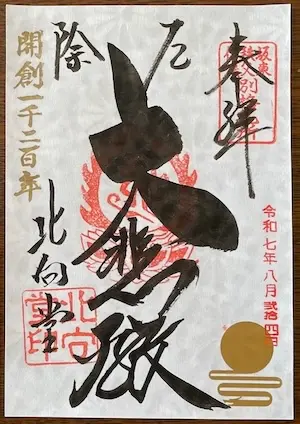 奉拝
令和七年八月弐拾四日
厄除
大悲殿
北向堂
北向堂印
開創一千二百年